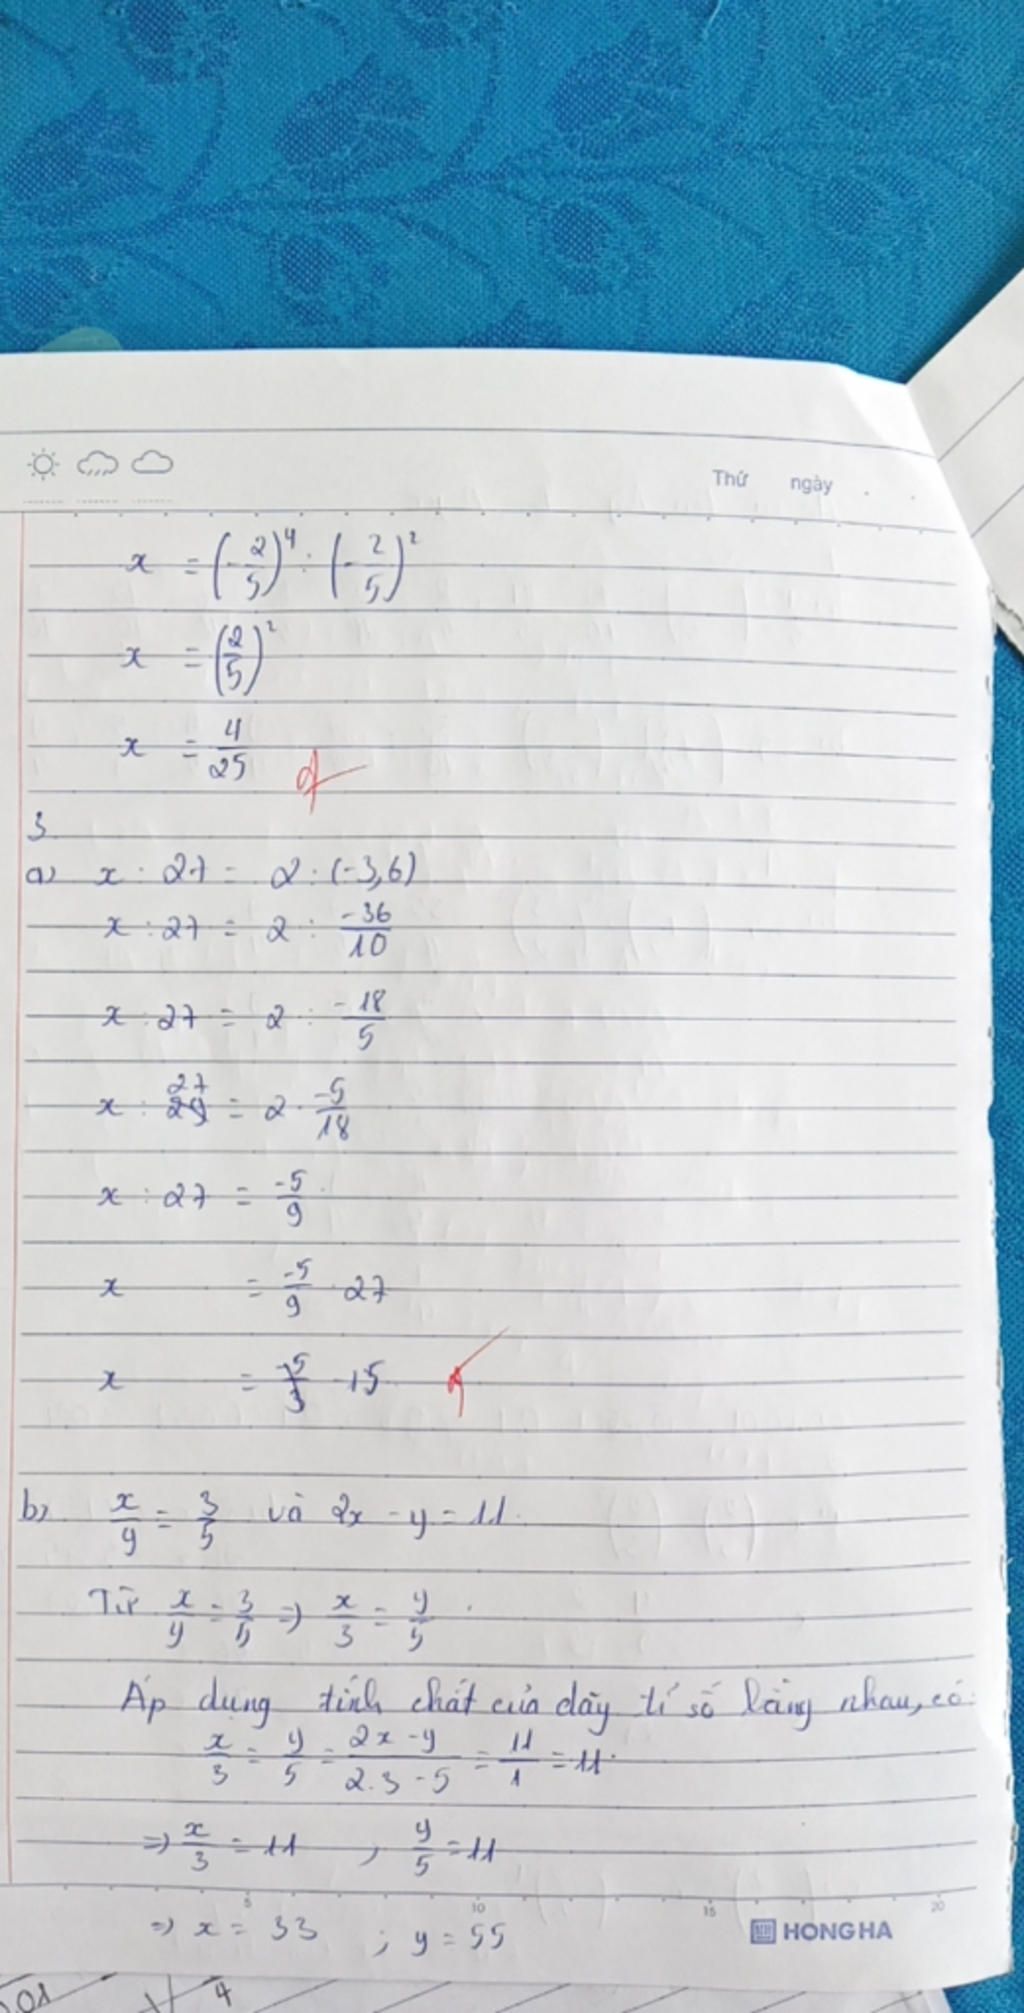 Thứ ngày
x = (-2/5)^4 : (-2/5)^2
x = (2/5)^2
x = 4/25
3
a) x : 27 = 2 : (-3,6)
x : 27 = 2 : -36/10
x : 27 = 2 : -18/5
x : 27 = 2 . -5/18
x : 27 = -5/9
x = -5/9 . 27
x = -15
b) x/y = 3/5 và 2x - y = 11.
Từ x/y = 3/5 => x/3 = y/5.
Áp dụng tính chất của dãy tỉ số bằng nhau, có:
x/3 = y/5 = 2x - y/2.3 - 5 = 11/1 = 11.
=> x/3 = 11 , y/5 = 11
5 10 15 20
=> x = 33 ; y = 55
HONG HA
4